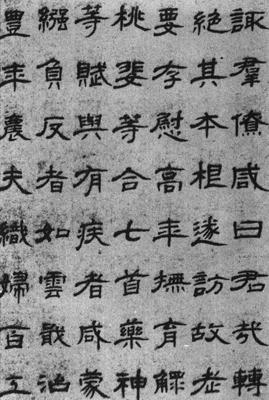 諏群僚咸曰君哉轉
絕其本根遂訪故老
要存慰高年撫育鰥
桃斐等合七首藥神
等賦與有疾者咸蒙
繦負反者如雲戢治
豐年農夫織婦百工